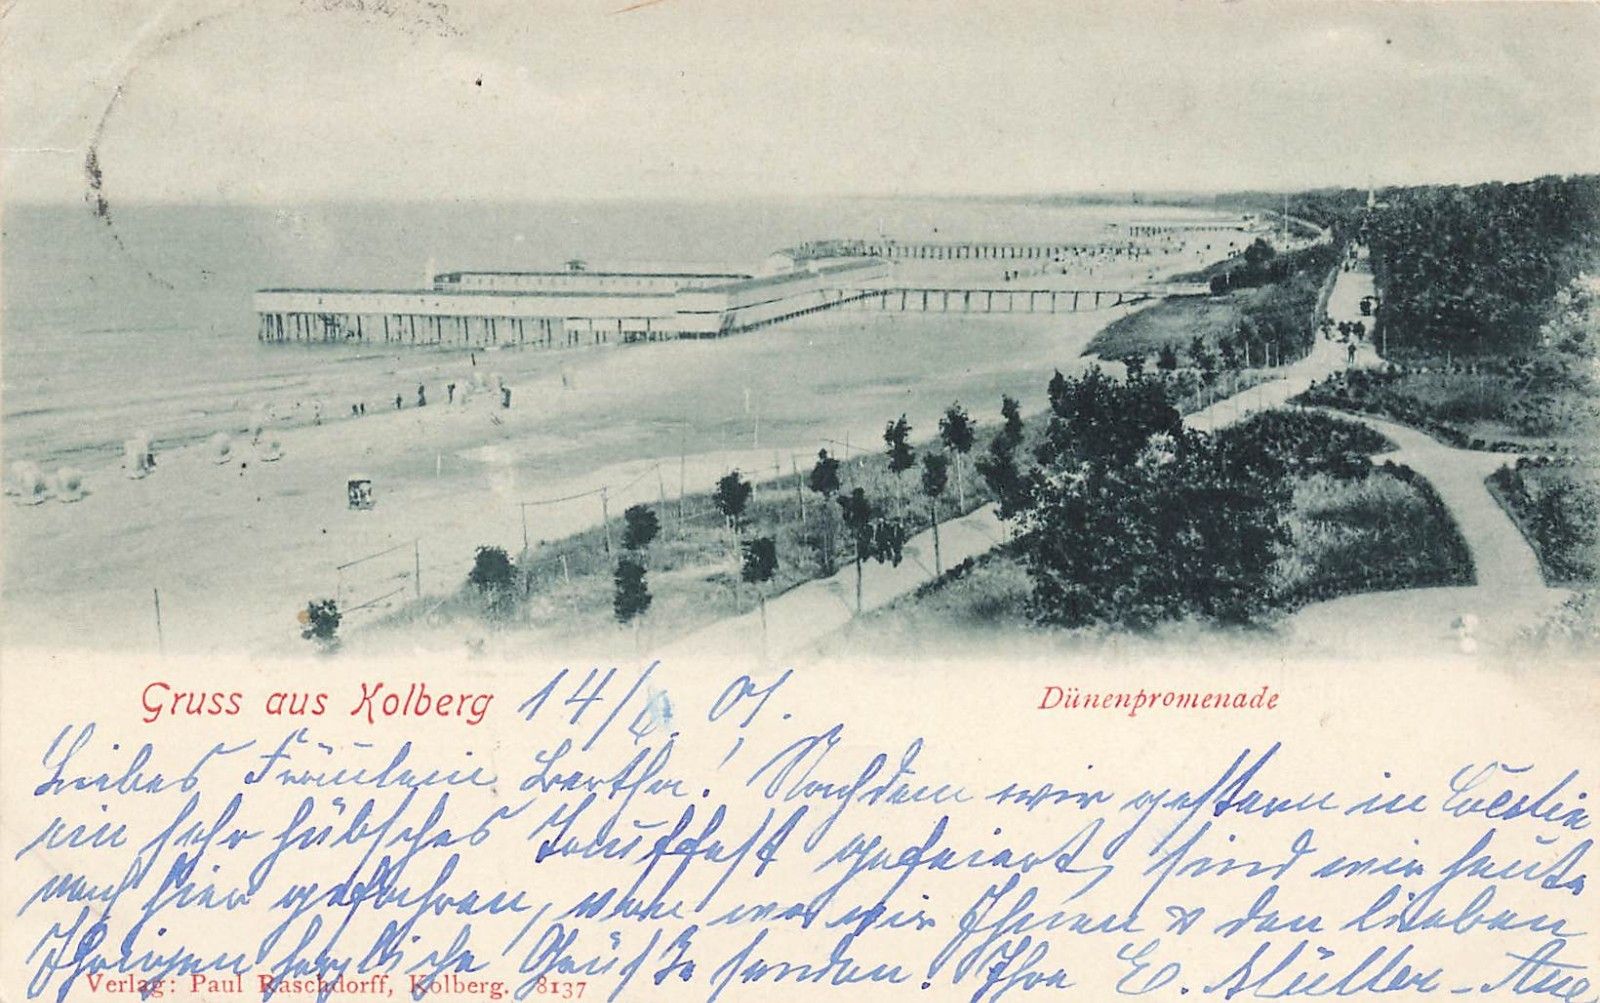 Gruss aus Kolberg 14/6. 01. Dünenpromenade
Liebes Fräulein Bertha! Nachdem wir gestern in Cöslin
ein sehr hübsches Tauffest gefeiert, sind wir heute
nach hier gefahren, von wo wir Ihnen & den lieben
Ihrigen herzliche Grüße senden. Ihre E. Müller-Aue
Verlag: Paul Raschdorff, Kolberg. 8137